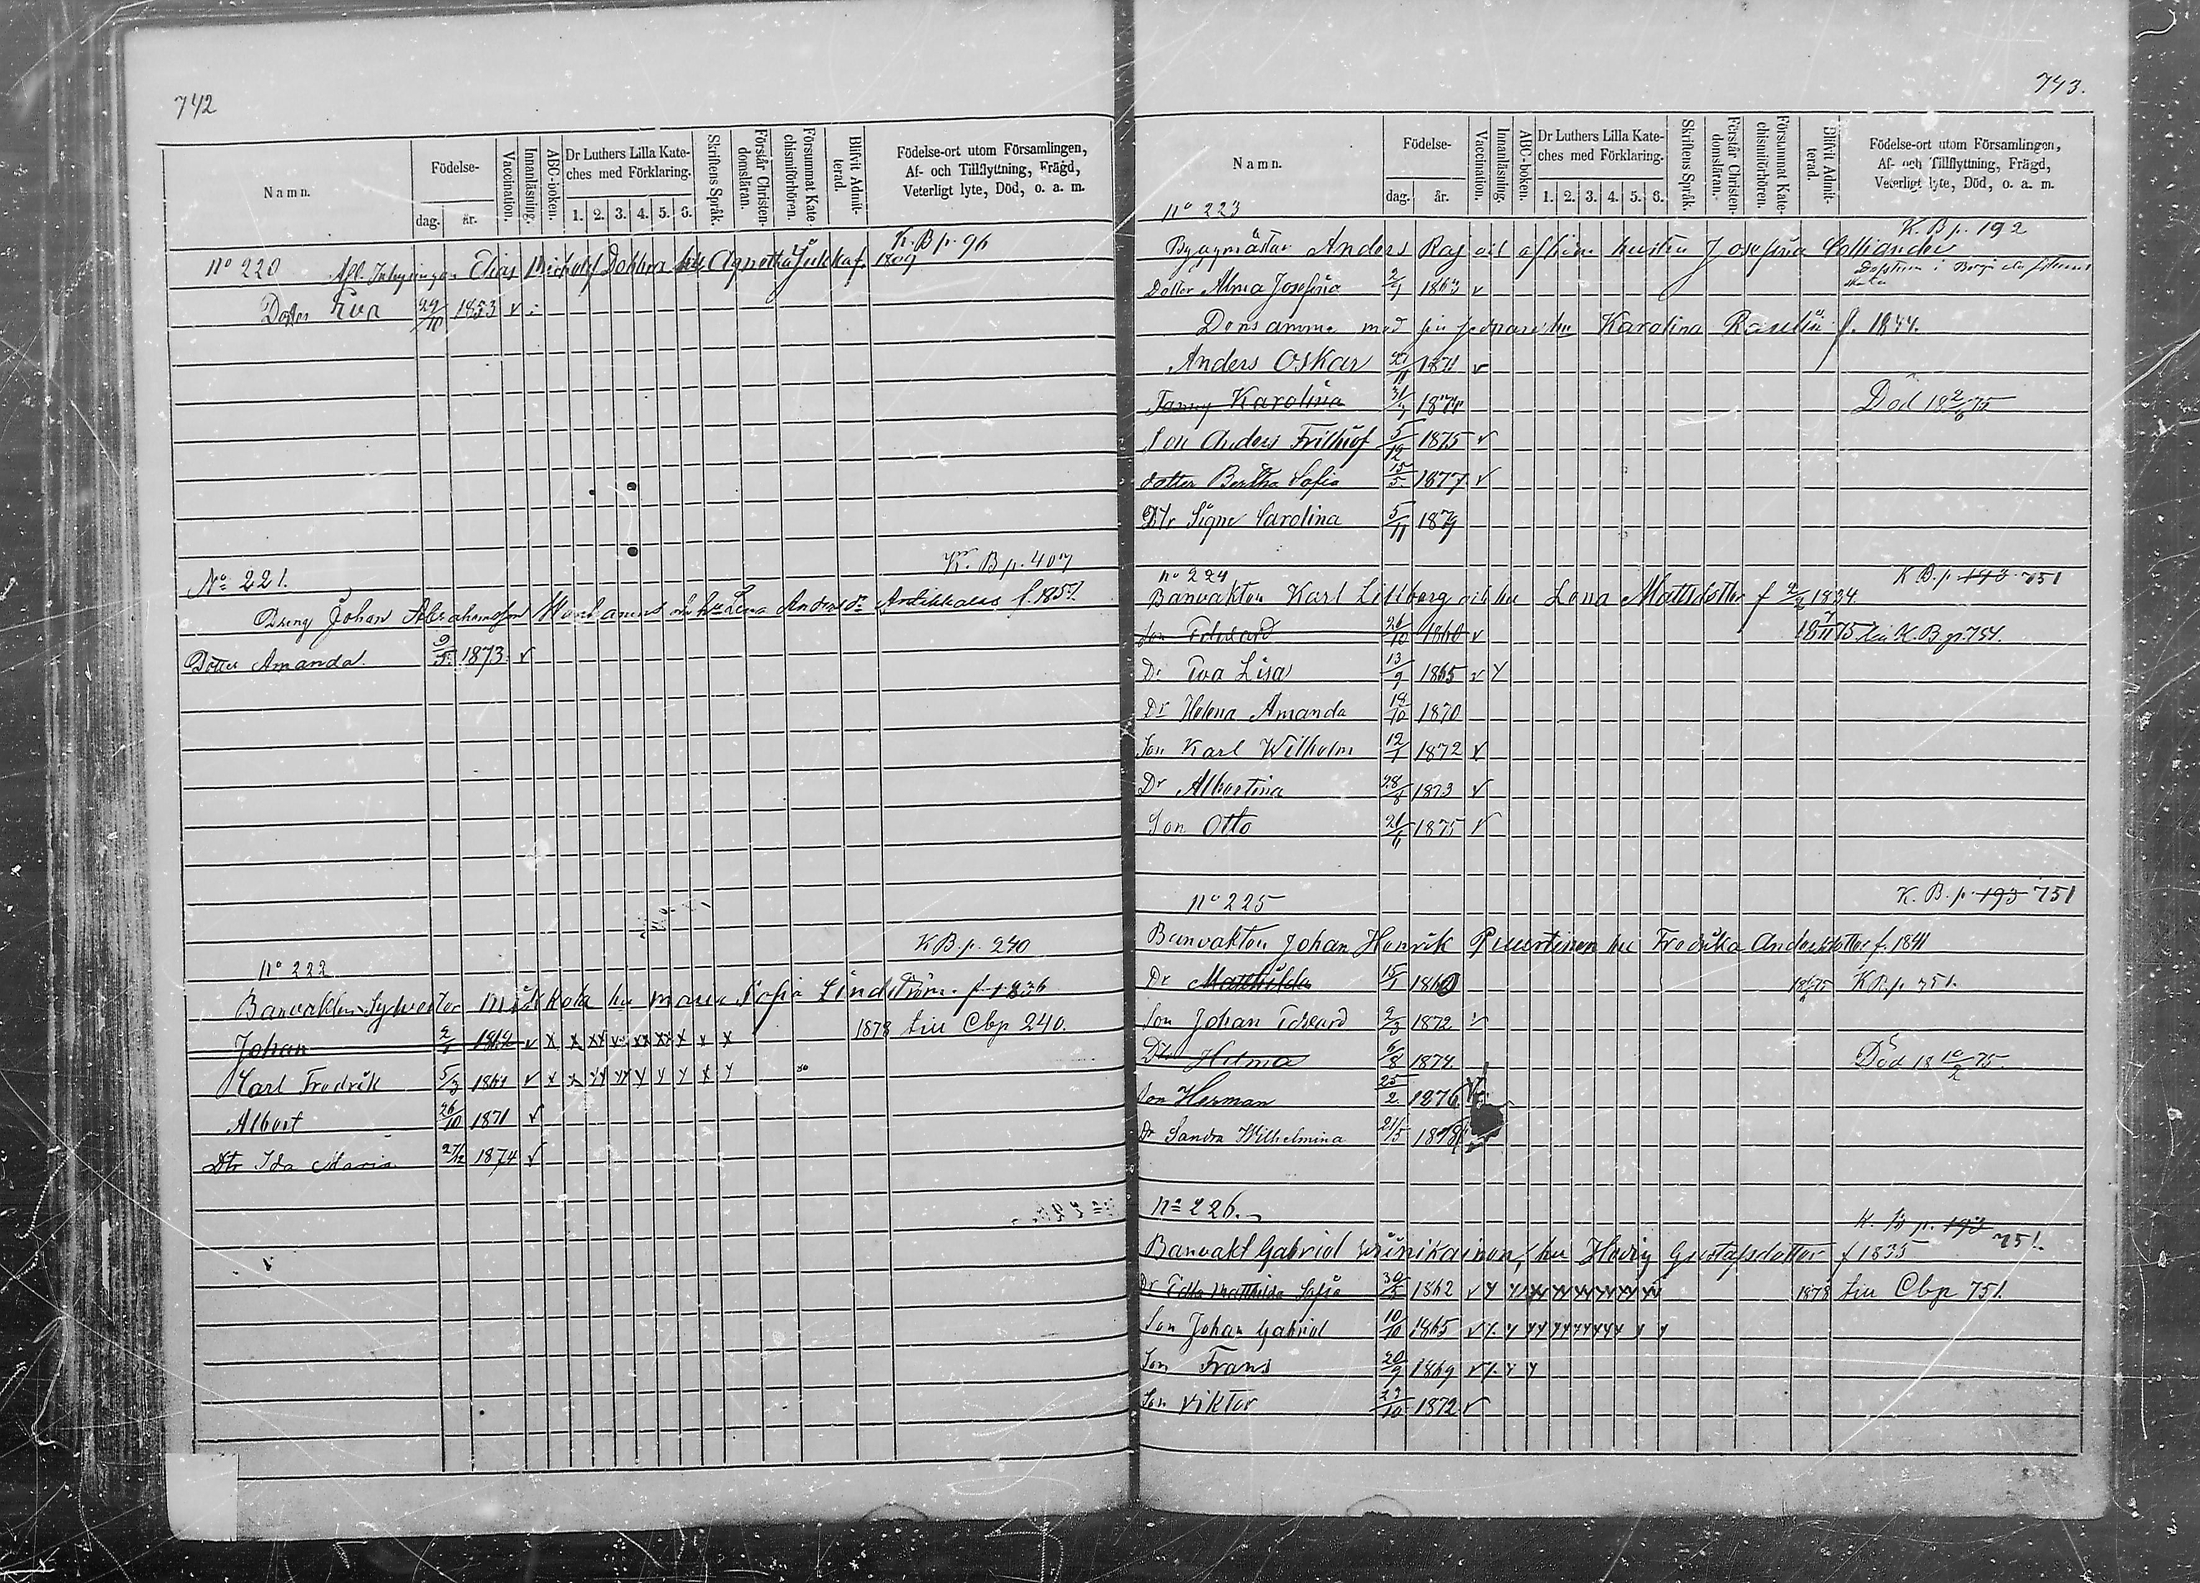 742
Namn.
Födelse-
dag.
år.
Vaccination.
Innanläsning.
ABC-boken.
Dr Luthers Lilla Kate-
ches med Förklaring.
1. 2. 3. 4. 5. 6.
Skriftens Språk.
Förstår Christen-
domsläran.
Försummat Kate-
chismiförhören.
Blifvit Admit-
terad.
Födelse-ort utom Församlingen,
Af- och Tillflyttning, Frägd,
Veterligt lyte, Död, o. a. m.
K. B p. 96
No 220 Elias hu Agnetha f. 1809
Dotter Eva 29/10 1853 v
K. B p. 407
No 221.
Dreng Johan Abrahamsson och hu Lena Andersdr f. 185
Dotter Amanda. 9/5 1873. v
K B. p. 240
No 222
Banvakten Sylvester Mikkola hu Maria Sofia Lindström f 1836
Johan 2/1 1862 v x x xx v xx xx x x x 1878 Liu Cbp 240.
Karl Fredrik 5/3 1864 v x x yy yy y y y x y
Albert 26/10 1871 v
Dtr Ida Maria 27/12 1874 v
743.
Namn.
Födelse-
dag.
år.
Vaccination.
Innanläsning.
ABC-boken.
Dr Luthers Lilla Kate-
ches med Förklaring.
1. 2. 3. 4. 5. 6.
Skriftens Språk.
Förstår Christen-
domsläran.
Försummat Kate-
chismiförhören.
Blifvit Admit-
terad.
Födelse-ort utom Församlingen,
Af- och Tillflyttning, Frägd,
Veterligt lyte, Död, o. a. m.
No 223
K. B p. 192
Byggmästar Anders och aflidne hustru Josefina
Dotter Alma Josefina 2/1 1863 v
Densamme med sin hu Karolina f. 1844.
Anders Oskar 27/11 1871 v
Fanny Karolina 31/7 1874 Död 18 2/8 75
Son Anders Frithiof 5/12 1875 v
dotter Bertha Sofia 15/5 1877 v
Dtr Signe Carolina 5/11 1879
No 224
K B. p. 193 751
Banvakten Karl Lillberg och hu Lena Mattsdotter f 2/2 1834.
Son Edvard 26/10 1860 v 18 7/11 75 Liu K. B p. 751.
Dr Eva Lisa 13/9 1865 v y
Dr Helena Amanda 18/10 1870
Son Karl Wilhelm 12/1 1872 v
Dr Albertina 28/8 1873 v
Son Otto 21/11 1875 v
No 225
K. B. p. 193 751
Banvakten Johan Henrik hu Fredrika Andersdotter f. 1841
Dr Mathilda 15/1 1860 K B. p. 751.
Son Johan Edvard 2/3 1872. v
Dtr Hilma 6/8 1874. Död 18 10/2 75.
Son Herman 25/2 1876
Dr Sandra Wilhelmina 21/5 1878
No 226.
K. B p. 193 751.
Banvakt Gabriel hu Hedvig Gustafsdotter f 1835
Dr Edla Mathilda Sofia 30/5 1862 v y 1878 Liu Cbp 751.
Son Johan Gabriel 10/10 1865 v
Son Frans 20/9 1869 v
Son Viktor 23/10 1872 v